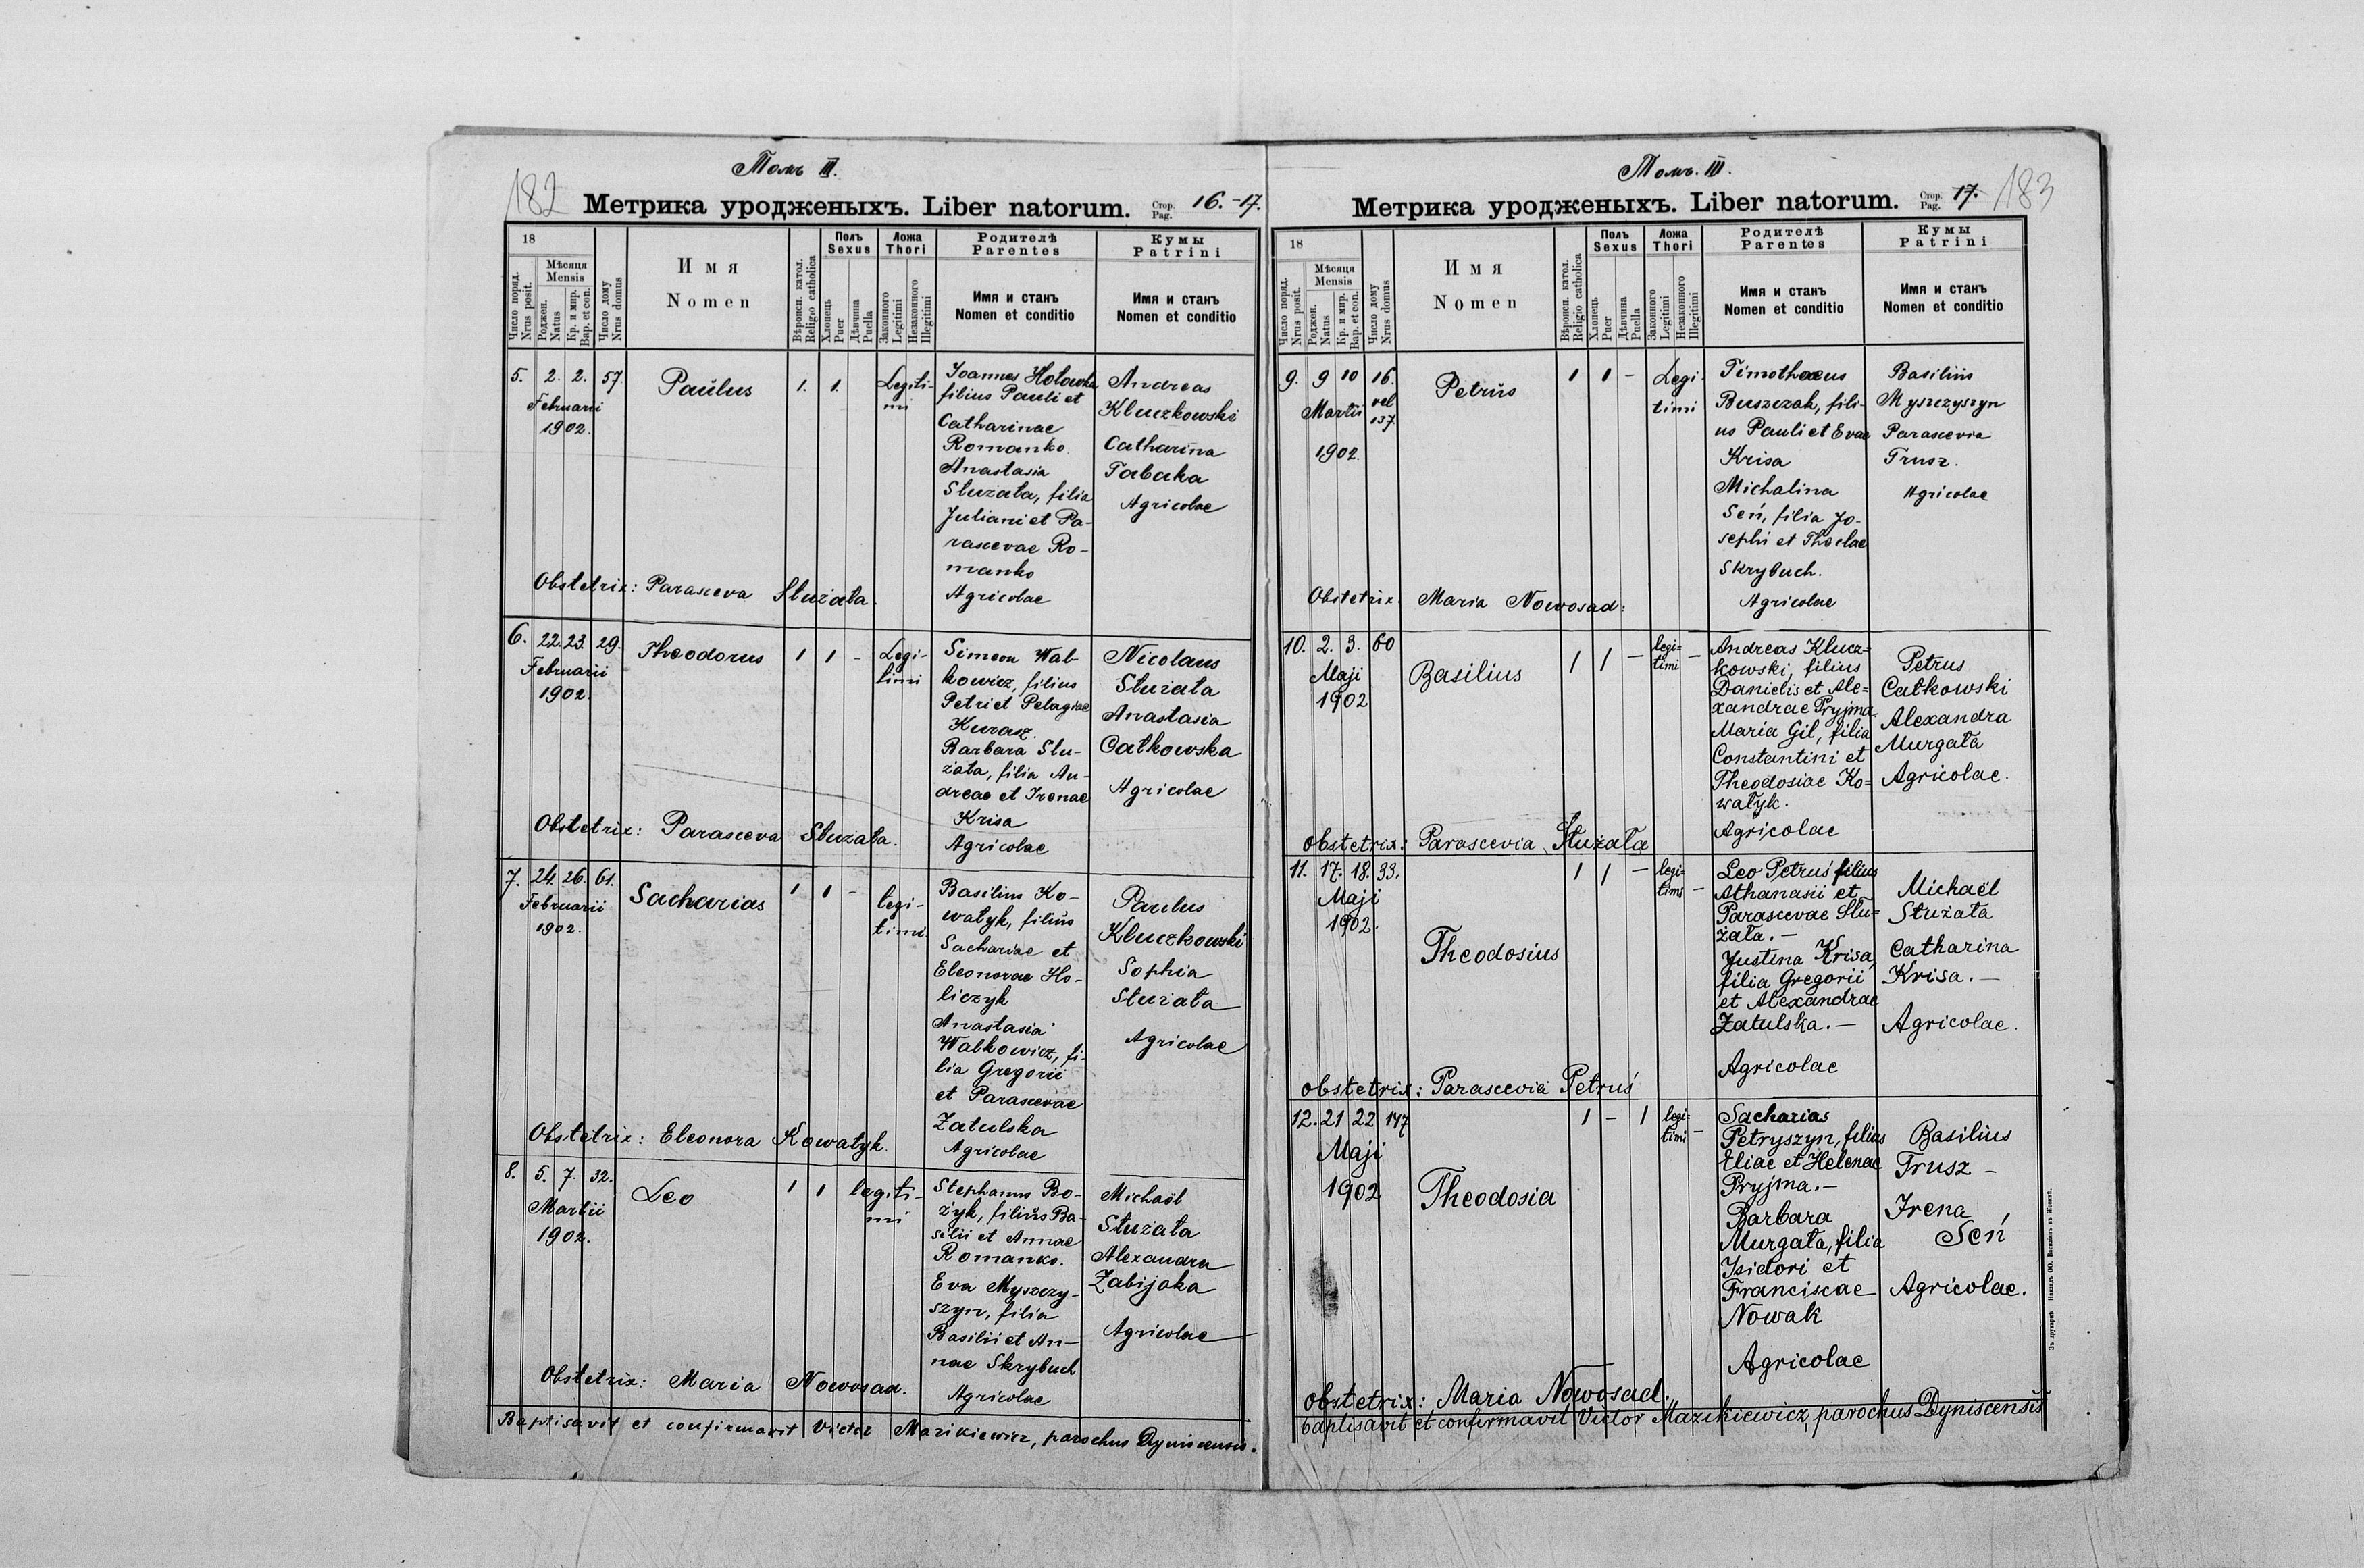 182
Томъ III.
Метрика уродженыхъ. Liber natorum. Стор. Pag. 16.-17.
18
Число поряд. Nrus posit.
Мѣсяця Mensis
Роджен. Natus
Кр. и мир. Bap. et con.
Число дому Nrus domus
Имя
Nomen
Вѣроисп. катол. Religio catholica
Полъ Sexus
Хлопець Puer
Дѣвчина Puella
Ложа Thori
Законного Legitimi
Незаконного Illegitimi
Родителѣ
Parentes
Имя и станъ
Nomen et conditio
Кумы
Patrini
Имя и станъ
Nomen et conditio
5. 2. 2. 57. Paulus 1. 1. Legiti-
mi
Februarii
1902.
Joannes Hołowka
filius Pauli et
Catharinae
Romanko.
Anastasia
Służała, filia
Juliani et Pa-
rascevae Ro-
manko
Agricolae
Andreas
Kluczkowski
Catharina
Tabaka
Agricolae
Obstetrix: Parasceva Służała.
6. 22. 23. 29. Theodorus 1 1 - Legi-
timi
Februarii
1902.
Simeon Wał-
kowicz, filius
Petri et Pelagiae
Kurasz.
Barbara Słu-
żała, filia An-
dreae et Irenae
Krisa
Agricolae
Nicolaus
Służała
Anastasia
Całkowska
Agricolae
Obstetrix: Parasceva Służała.
7. 24. 26. 61. Sacharias 1 1 - legi-
timi.
Februarii
1902.
Basilius Ko-
wałyk, filius
Sachariae et
Eleonorae Ho-
liczyk
Anastasia
Wałkowicz, fi-
lia Gregorii
et Parascevae
Zatulska
Agricolae
Paulus
Kluczkowski
Sophia
Służała
Agricolae
Obstetrix: Eleonora Kowałyk.
8. 5. 7. 32. Leo 1 1 legiti-
mi
Martii
1902.
Stephanus Bo-
żyk, filius Ba-
silii et Annae
Romanko.
Eva Myszczy-
szyn, filia
Basilii et An-
nae Skrybuch
Agricolae
Michaël
Służała
Alexandra
Zabijaka
Agricolae
Obstetrix: Maria Nowosad.
Baptisavit et confirmavit Victor Mazikiewicz, parochus Dyniscensis.
183
Томъ. III.
Метрика уродженыхъ. Liber natorum. Стор. Pag. 17.
18
Число поряд. Nrus posit.
Мѣсяця Mensis
Роджен. Natus
Кр. и мир. Bap. et con.
Число дому Nrus domus
Имя
Nomen
Вѣроисп. катол. Religio catholica
Полъ Sexus
Хлопець Puer
Дѣвчина Puella
Ложа Thori
Законного Legitimi
Незаконного Illegitimi
Родителѣ
Parentes
Имя и станъ
Nomen et conditio
Кумы
Patrini
Имя и станъ
Nomen et conditio
9. 9 10 16. Petrus 1 1 - Legi-
timi
Martii vel
137.
1902.
Timothaeus
Buszczak, fili-
us Pauli et Evae
Krisa
Michalina
Seń, filia Jo-
sephi et Theclae
Skrybuch.
Agricolae
Basilius
Myszczyszyn
Parascevia
Trusz.
Agricolae
Obstetrix. Maria Nowosad:
10. 2. 3. 60 Basilius 1 1 - legi=
timi -
Maji
1902
Andreas Klucz=
kowski, filius
Danielis et Ale=
xandrae Pryjma
Maria Gil, filia
Constantini et
Theodosiae Ko=
wałyk.
Agricolae
Petrus
Całkowski
Alexandra
Murgała
Agricolae.
obstetrix: Parascevia Służała
11. 17. 18. 33. Theodosius 1 1 - legi=
timi -
Maji
1902.
Leo Petruś filius
Athanasii et
Parascevae Słu=
żała. -
Justina Krisa,
filia Gregorii
et Alexandrae
Zatulska. -
Agricolae
Michaël
Służała
Catharina
Krisa. -
Agricolae.
obstetrix: Parascevia Petruś
12. 21 22 147 Theodosia 1 - 1 legi=
timi -
Maji
1902
Sacharias
Petryszyn, filius
Eliae et Helenae
Pryjma. -
Barbara
Murgała, filia
Isidori et
Franciscae
Nowak
Agricolae
Basilius
Trusz -
Irena
Seń
Agricolae.
obstetrix: Maria Nowosad.
baptisavit et confirmavit Victor Mazikiewicz, parochus Dyniscensis